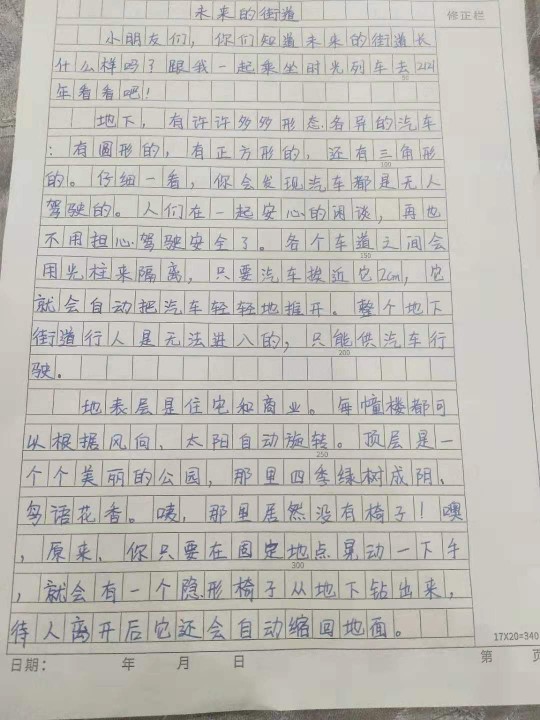 未来的街道
修正栏
小朋友们,你们知道未来的街道长
什么样吗?跟我一起乘坐时光列车去2121
50
年看看吧!
地下,有许许多多形态各异的汽车
:有圆形的,有正方形的,还有三角形
100
的。仔细一看,你会发现汽车都是无人
驾驶的。人们在一起安心的闲谈,再也
不用担心驾驶安全了。各个车道之间会
150
用光柱来隔离,只要汽车挨近它2cm,它
就会自动把汽车轻轻地推开。整个地下
街道行人是无法进入的,只能供汽车行
200
驶。
地表层是住宅和商业。每幢楼都可
以根据风向、太阳自动旋转。顶层是一
250
个个美丽的公园,那里四季绿树成阴、
鸟语花香。咦,那里居然没有椅子!噢
,原来、你只要在固定地点晃动一下手
300
,就会有一个隐形椅子从地下钻出来,
待人离开后它还会自动缩回地面。
17X20=340
日期: 年 月 日
第 页